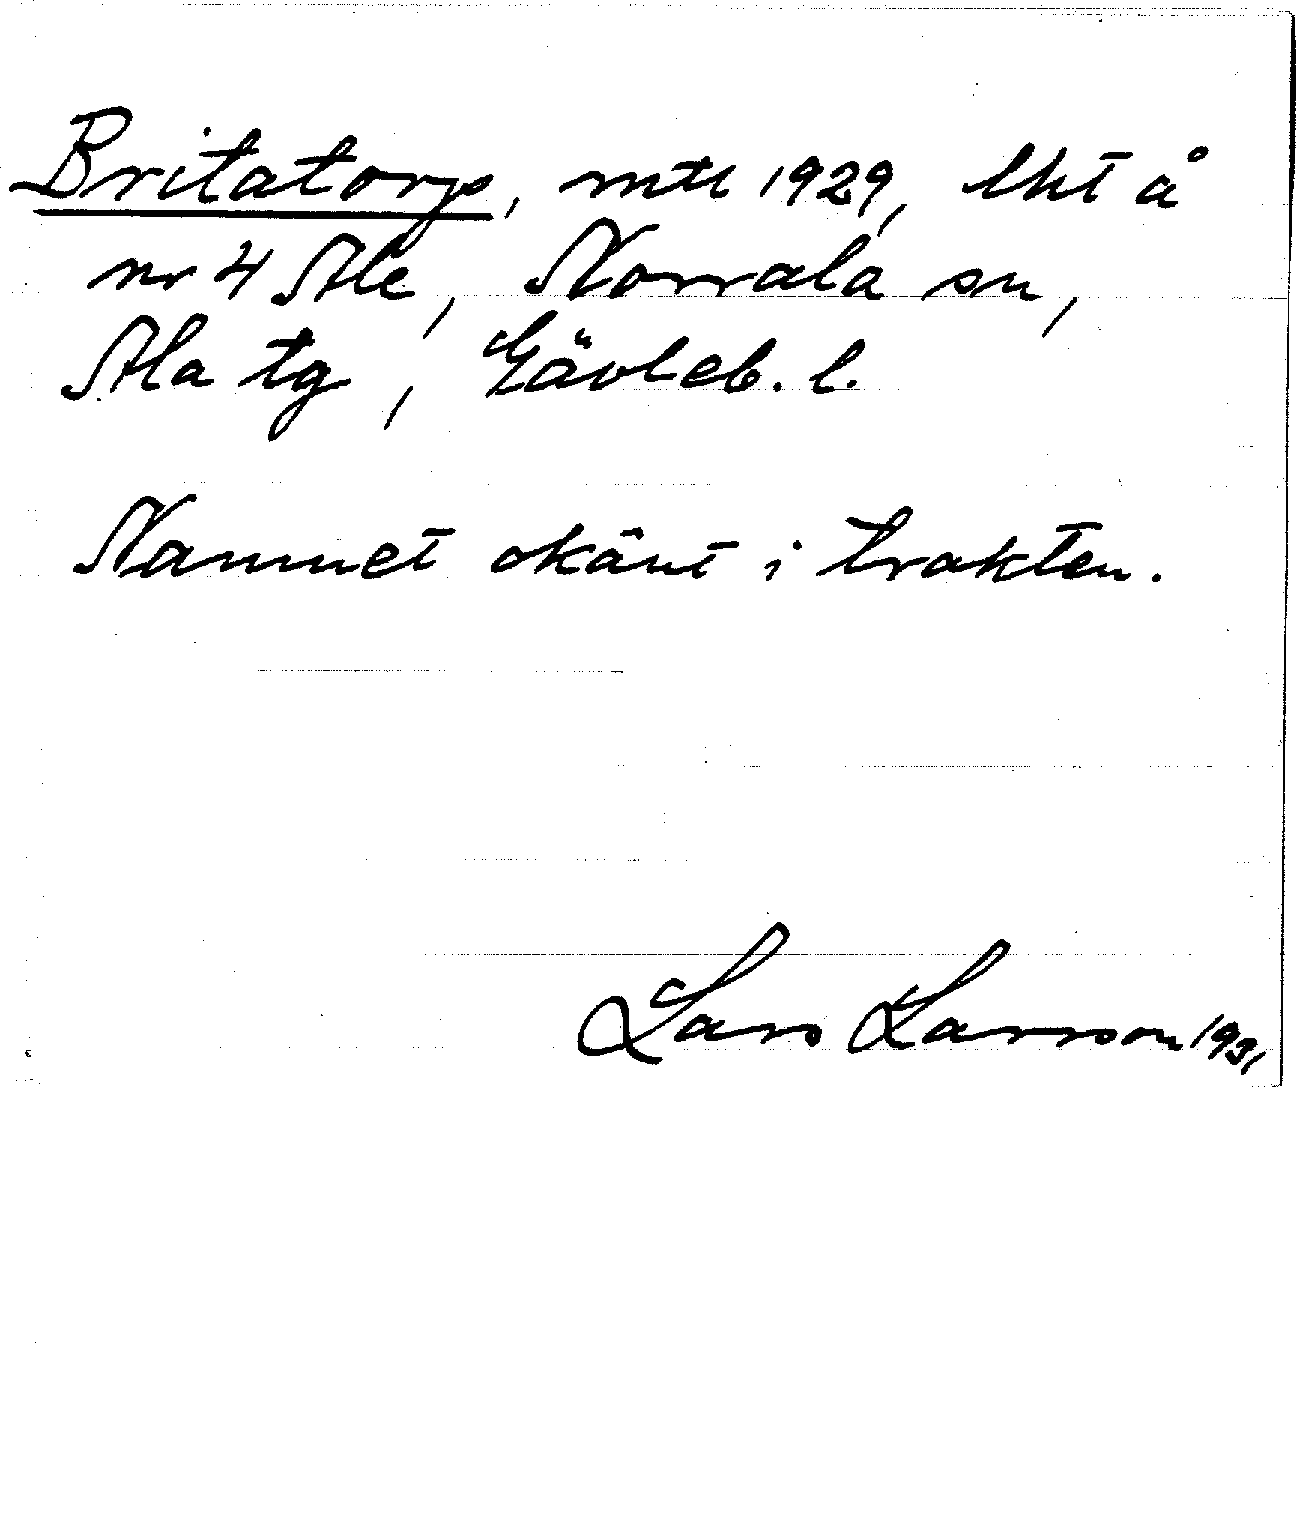 Britatorp, mtl 1929, lht å
nr 4 Ale, Norrala sn,
Ala tg, Gävleb. l.
Namnet okänt i trakten.
Lars Larsson 1931